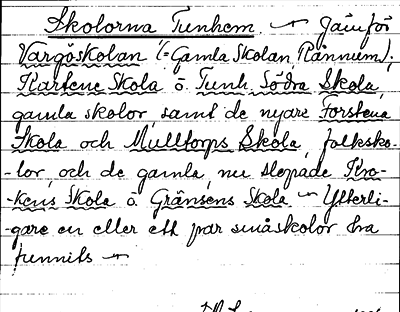 Skolorna Tunhem. — Jämför
Vargöskolan (=Gamla Skolan, Rånnum);
Flartens Skola ö Tunh. Södra Skola,
gamla skolor, samt de nyare Forstena
Skola och Mulltorps Skola, folksko-
-lor, och de gamla, nu slopade Flo-
-kens Skola ö Gränsens Skola — Ytterli-
-gare en eller ett par småskolor ha
funnits —